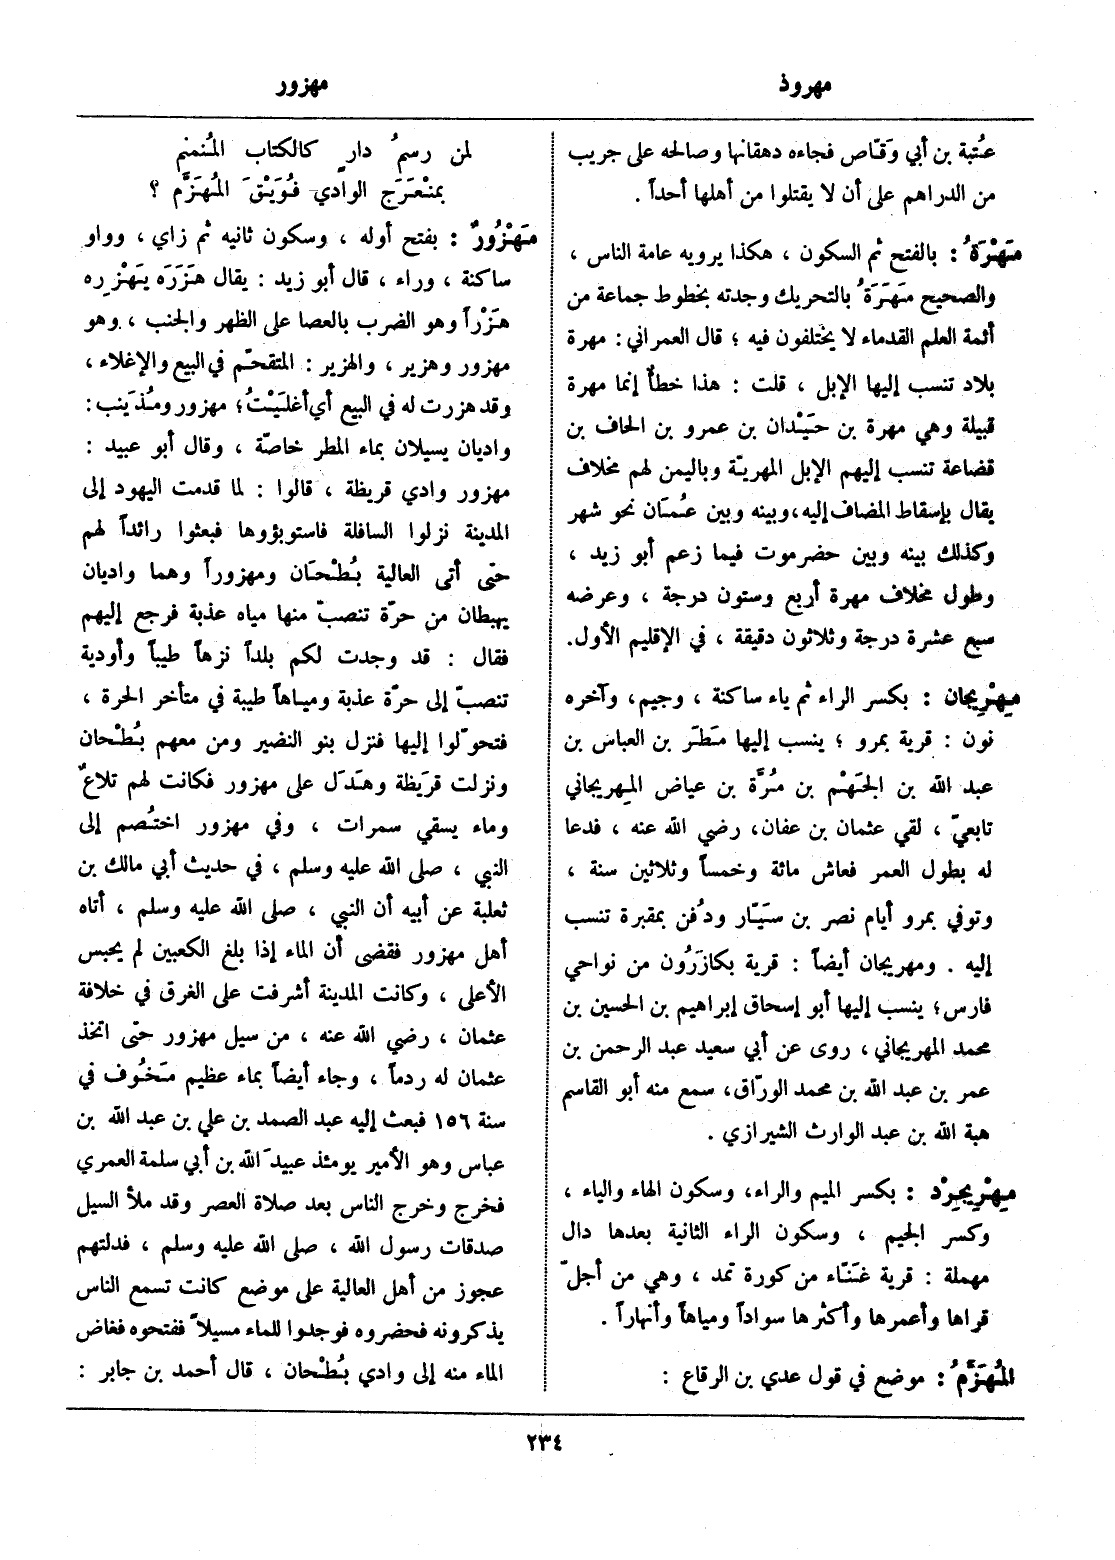 مهروذ
مهزور
عُتبة بن أبي وَقّاص فجاءه دهقانها وصالحه على جريب
من الدراهم على أن لا يقتلوا من أهلها أحداً .
مَهْرَةُ : بالفتح ثم السكون ، هكذا يرويه عامة الناس ،
والصحيح مَهَرَةُ بالتحريك وجدته بخطوط جماعة من
أئمة العلم القدماء لا يختلفون فيه ؛ قال العمراني : مهرة
بلاد تنسب إليها الإبل ، قلت : هذا خطأٌ إنما مهرة
قبيلة وهي مهرة بن حَيْدان بن عمرو بن الحاف بن
قضاعة تنسب إليهم الإبل المهريّة وباليمن لهم مخلاف
يقال بإسقاط المضاف إليه، وبينه وبين عُمَان نحو شهر
وكذلك بينه وبين حضرموت فيما زعم أبو زيد ،
وطول مخلاف مهرة أربع وستون درجة ، وعرضه
سبع عشرة درجة وثلاثون دقيقة ، في الإقليم الأول.
مِهْرِيجان : بكسر الراء ثم ياء ساكنة ، وجيم، وآخره
نون : قرية بمرو ؛ ينسب إليها مَطَر بن العباس بن
عبد الله بن الجَهْم بن مُرَّة بن عياض المِهريجاني
تابعيّ ، لقي عثمان بن عفان، رضي الله عنه ، فدعا
له بطول العمر فعاش مائة وخمساً وثلاثين سنة ،
وتوفي بمرو أيام نصر بن سَيّار ودُفن بمقبرة تنسب
إليه . ومهريجان أيضاً : قرية بكازَرُون من نواحي
فارس؛ ينسب إليها أبو إسحاق إبراهيم بن الحسين بن
محمد المهريجاني ، روى عن أبي سعيد عبد الرحمن بن
عمر بن عبد الله بن محمد الورّاق، سمع منه أبو القاسم
هبة الله بن عبد الوارث الشيرازي .
مِهْرِيجِرْد : بكسر الميم والراء، وسكون الهاء والياء ،
وكسر الجيم ، وسكون الراء الثانية بعدها دال
مهملة : قرية غَنّاء من كورة تمد ، وهي من أجلّ
قراها وأعمرها وأكثرها سواداً ومياهاً وأنهاراً .
المُهَزَّمُ : موضع في قول عدي بن الرقاع :
لمن رسمُ دارٍ كالكتاب المُنمنمِ
بمنْعَرَج الوادي فُوَيْقَ المُهَزَّمِ ؟
مَهْزُورٌ : بفتح أوله ، وسكون ثانيه ثم زاي ، وواو
ساكنة ، وراء ، قال أبو زيد : يقال هَزَرَه يَهْزِره
هَزْراً وهو الضرب بالعصا على الظهر والجنب ، وهو
مهزور وهزير ، والهزير : المتقحّم في البيع والإغلاء ،
وقد هزرت له في البيع أي أغلَيْتُ؛ مهزور ومُذَينب:
واديان يسيلان بماء المطر خاصّة ، وقال أبو عبيد :
مهزور وادي قريظة ، قالوا : لما قدمت اليهود إلى
المدينة نزلوا السافلة فاستوبؤوها فبعثوا رائداً لهم
حتى أتى العالية بُطْحَان ومهزوراً وهما واديان
يهبطان من حرّة تنصبّ منها مياه عذبة فرجع إليهم
فقال : قد وجدت لكم بلداً نزهاً طيباً وأودية
تنصبّ إلى حرّة عذبة ومياهاً طيبة في متأخر الحرة ،
فتحوّلوا إليها فنزل بنو النضير ومن معهم بُطْحان
ونزلت قرَيظة وهَدَل على مهزور فكانت لهم تلاعٌ
وماء يسقي سمرات ، وفي مهزور اختُصم إلى
النبي ، صلى الله عليه وسلم ، في حديث أبي مالك بن
ثعلبة عن أبيه أن النبي ، صلى الله عليه وسلم ، أتاه
أهل مهزور فقضى أن الماء إذا بلغ الكعبين لم يحبس
الأعلى ، وكانت المدينة أشرفت على الغرق في خلافة
عثمان ، رضي الله عنه ، من سيل مهزور حتى اتخذ
عثمان له ردماً ، وجاء أيضاً بماء عظيم مَخُوف في
سنة ١٥٦ فبعث إليه عبد الصمد بن علي بن عبد الله بن
عباس وهو الأمير يومئذ عبيدَ الله بن أبي سلمة العمري
فخرج وخرج الناس بعد صلاة العصر وقد ملأ السيل
صدقات رسول الله ، صلى الله عليه وسلم ، فدلتهم
عجوز من أهل العالية على موضع كانت تسمع الناس
يذكرونه فحضروه فوجدوا للماء مسيلاً ففتحوه فغاض
الماء منه إلى وادي بُطْحان ، قال أحمد بن جابر :
٢٣٤